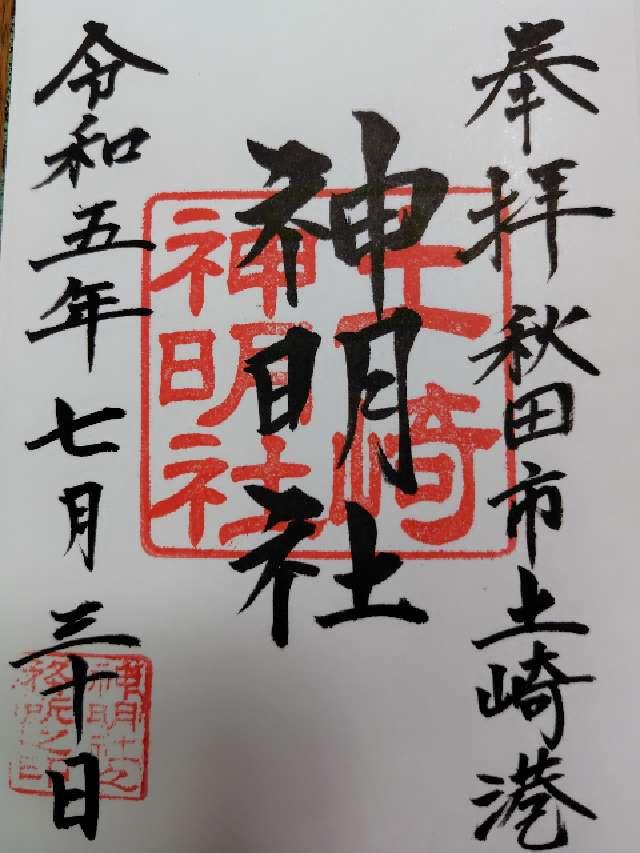 奉拝 秋田市土崎港
神明社
令和五年七月三十日
土崎
神明社